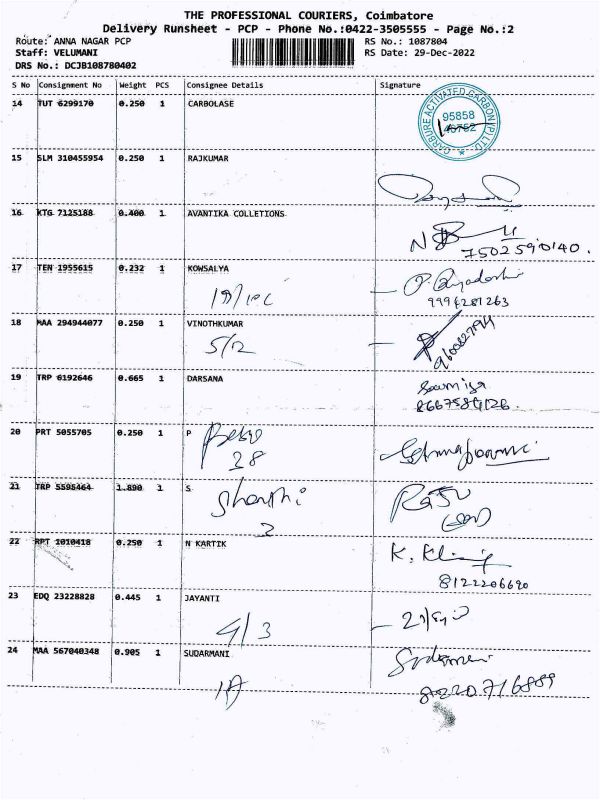 THE PROFESSIONAL COURIERS, Coimbatore
Delivery Runsheet - PCP - Phone No.:0422-3505555 - Page No.:2
Route: ANNA NAGAR PCP RS No.: 1087804
Staff: VELUMANI RS Date: 29-Dec-2022
DRS No.: DCJB108780402
S No Consignment No Weight PCS Consignee Details Signature
14 TUT 6299170 0.250 1 CARBOLASE
CARBURE ACTIVATED CARBON (P) LTD.
95858
15 SLM 310455954 0.250 1 RAJKUMAR
16 KTG 7125188 0.400 1 AVANTIKA COLLETIONS
7502590140.
17 TEN 1955615 0.232 1 KOWSALYA
18 MAA 294944077 0.250 1 VINOTHKUMAR
5/12
19 TRP 6192646 0.665 1 DARSANA
Soumiya
20 PRT 5055705 0.250 1 P
28
21 TRP 5595464 1.890 1 S
2
Raju
22 RPT 1010418 0.250 1 N KARTIK
8122206690
23 EDQ 23228828 0.445 1 JAYANTI
4/3
24 MAA 567040348 0.905 1 SUDARMANI